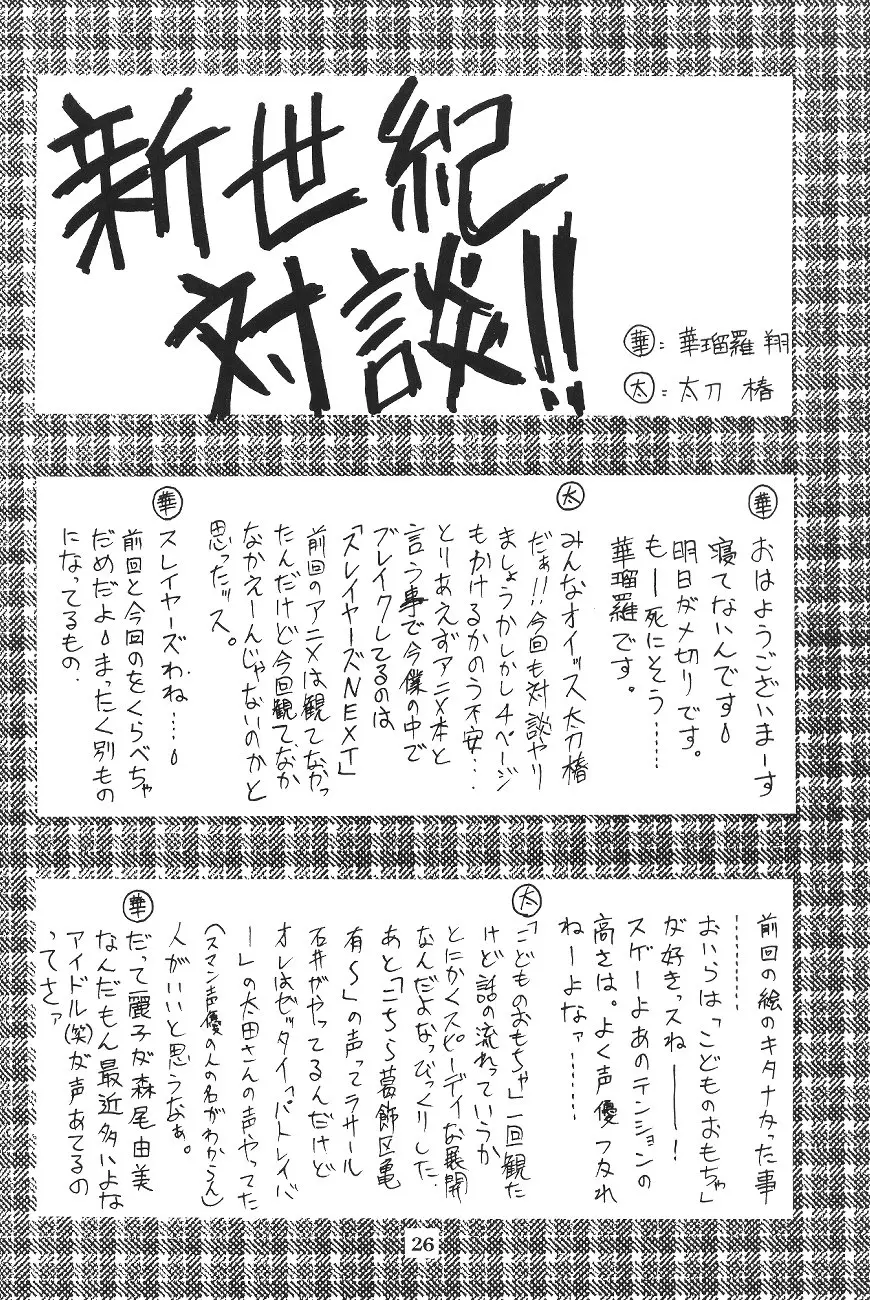 新世紀
対談!!
華：華瑠羅 翔
太：太刀 椿
華
おはようございまーす
寝てないんです
明日が〆切りです。
もー死にそう……
華瑠羅です。
太
みんなオイッス太刀椿
だぁ!!今回も対談ヤリ
ましょうかしかし4ページ
もかけるかのう不安…
とりあえずアニメ本と
言う事で今僕の中で
ブレイクしてるのは
「スレイヤーズNEXT」
前回のアニメは観てなかっ
たんだけど今回観てなか
なかえーんじゃないのかと
思ったッス。
華
スレイヤーズわね…
前回と今回のをくらべちゃ
だめだよまたく別もの
になってるもの.
前回の絵のキタナかった事
…………
おいらは「こどものおもちゃ」
が好きっスねーー！
スゲーよあのテンションの
高さは。よく声優つかれ
ねーよなァ……
太
「こどものおもちゃ」一回観た
けど話の流れっていうか
とにかくスピーディな展開
なんだよなっびっくりした.
あと「こちら葛飾区亀
有〜」の声ってラサール
石井がやってるんだけど
オレはゼッタイ「パトレイバ
ー」の太田さんの声やってた
人がいいと思うなぁ。
(スマン声優の人の名がわからん)
華
だって麗子が森尾由美
なんだもん最近多いよな
アイドル(笑)が声あてるの
ってさァ
26